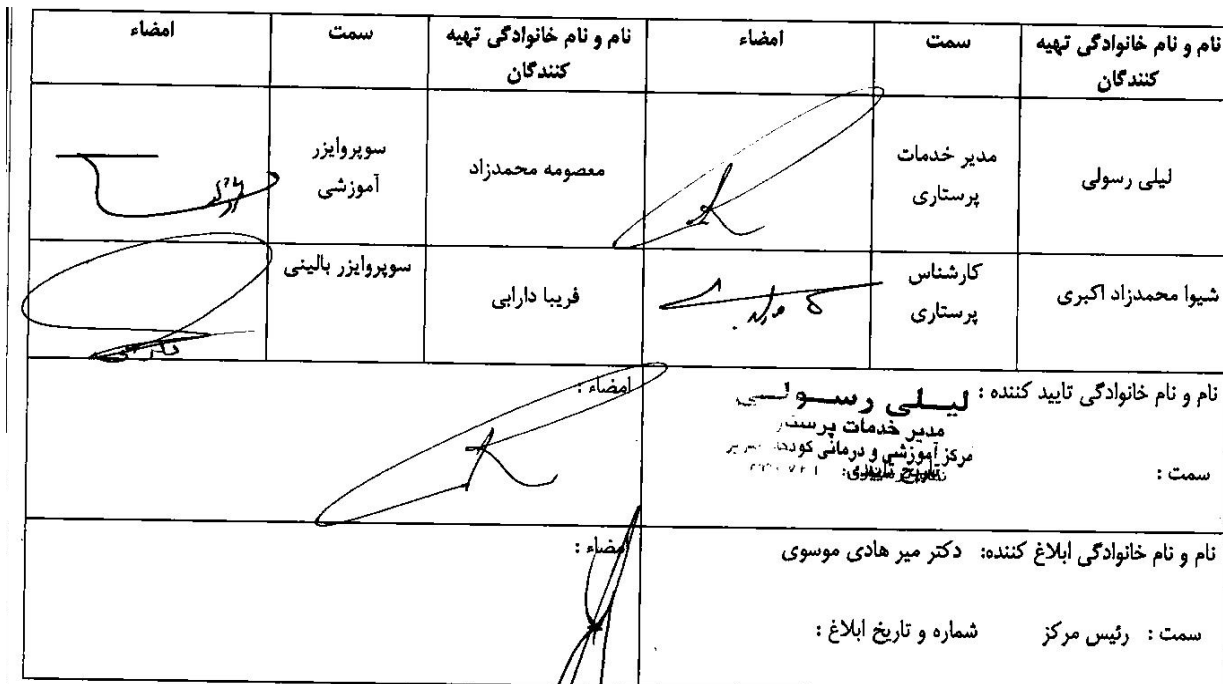 نام و نام خانوادگی تهیه کنندگان	سمت	امضاء	نام و نام خانوادگی تهیه کنندگان	سمت	امضاء
لیلی رسولی	مدیر خدمات پرستاری	معصومه محمدزاد	سوپروایزر آموزشی
شیوا محمدزاد اکبری	کارشناس پرستاری	فریبا دارابی	سوپروایزر بالینی
نام و نام خانوادگی تایید کننده :	امضاء :
لیلی رسولی
مدیر خدمات
مرکز آموزشی و درمانی
سمت :
نام و نام خانوادگی ابلاغ کننده: دکتر میر هادی موسوی	امضاء :
سمت : رئیس مرکز شماره و تاریخ ابلاغ :